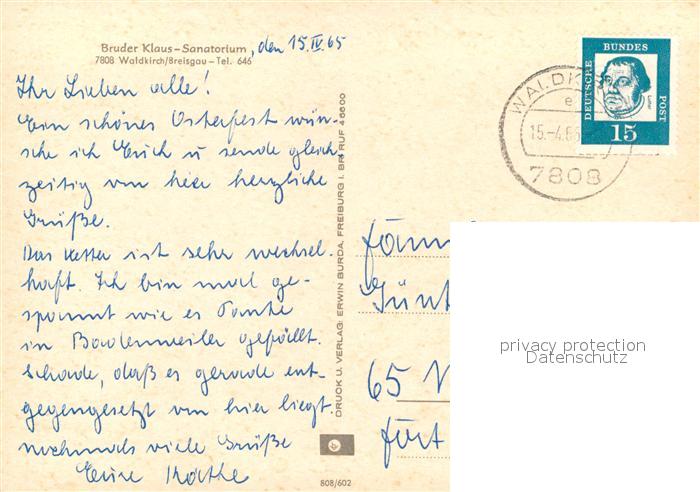 Bruder Klaus-Sanatorium
7808 Waldkirch/Breisgau - Tel. 646
, den 15.IV.65
Ihr Lieben alle!
Ein schönes Osterfest wün-
sche ich Euch u sende gleich-
zeitig von hier herzliche
Grüße.
Das Wetter ist sehr wechsel-
haft. Ich bin mal ge-
spannt wie es Tante
in Badenweiler gefällt.
Schade, daß es gerade ent-
gegengesetzt von hier liegt.
nochmals viele Grüße
Eure Käthe
DRUCK U. VERLAG: ERWIN BURDA, FREIBURG I. BR. RUF 46600
808/602
DEUTSCHE
BUNDES
POST
Luther
15
WALDK
e
15.-4.65
7808
Günt
65
privacy protection
Datenschutz